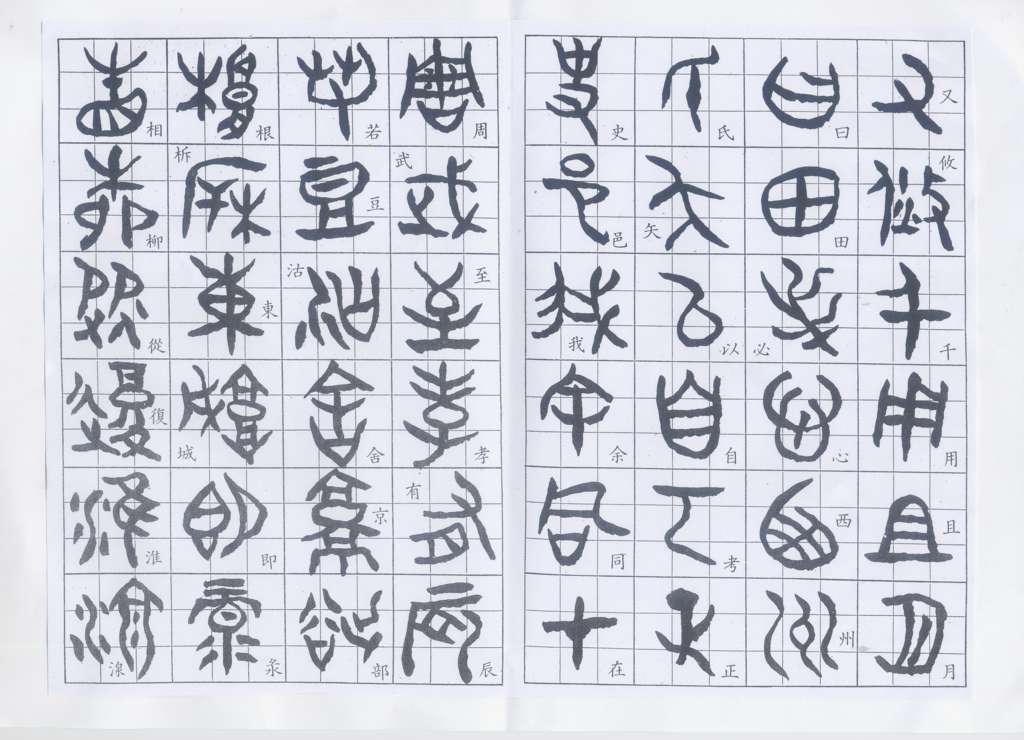 又攸千用且月
曰田必心西州
氏矢以自考正
史邑我余同在
周武至孝有辰
若豆沽舍京部
根柝東城即
相柳從復淮